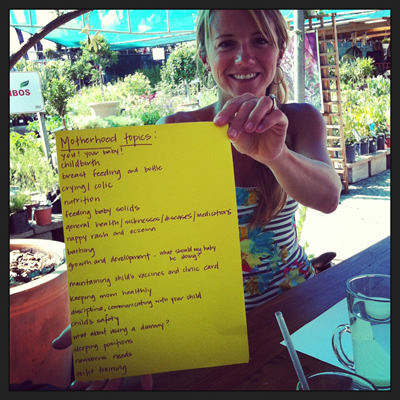 BOS
Motherhood topics:
you! your baby!
childbirth
breast feeding and bottle
crying/colic
nutrition
feeding baby solids
general health/sicknesses/diseases/medications
nappy rash and eczema
bathing
growth and development - what should my baby
be doing?
maintaining child's vaccines and clinic card
keeping mom healthy
discipline, communicating with your child
child's safety
what about using a dummy?
sleeping positions
newborns needs
training